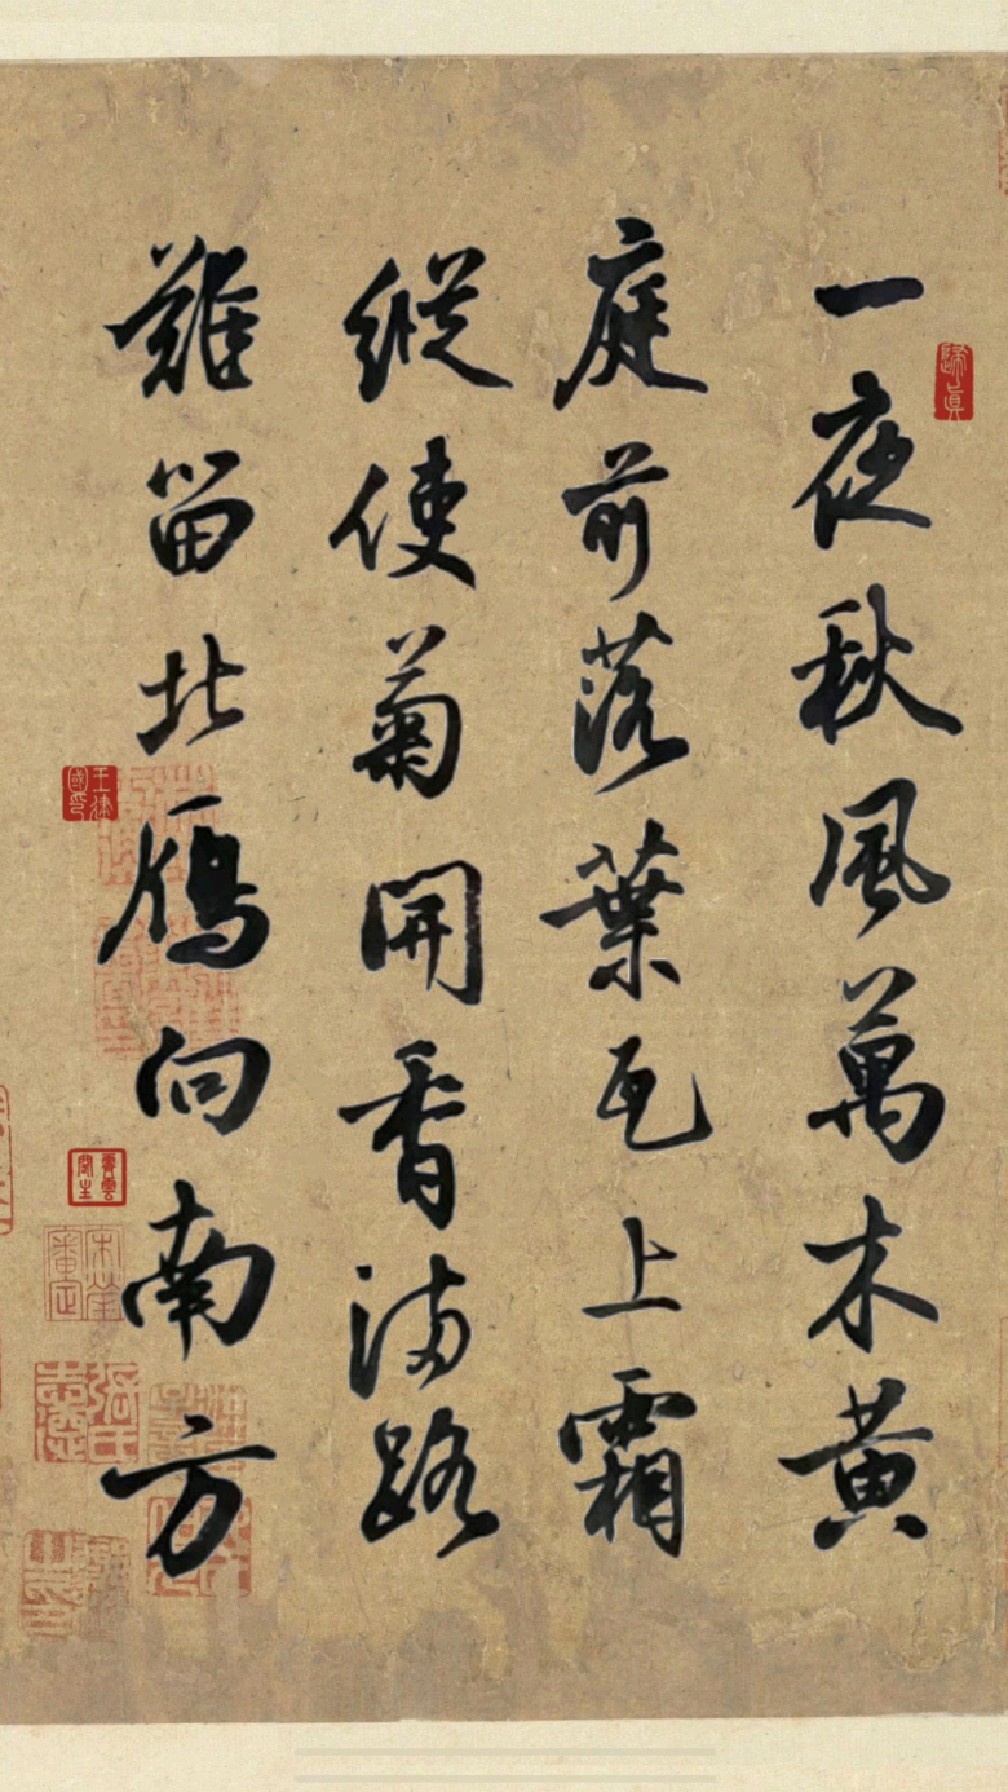 一夜秋風萬木黃
庭前落葉瓦上霜
縱使菊開香滿路
難留北鴈向南方